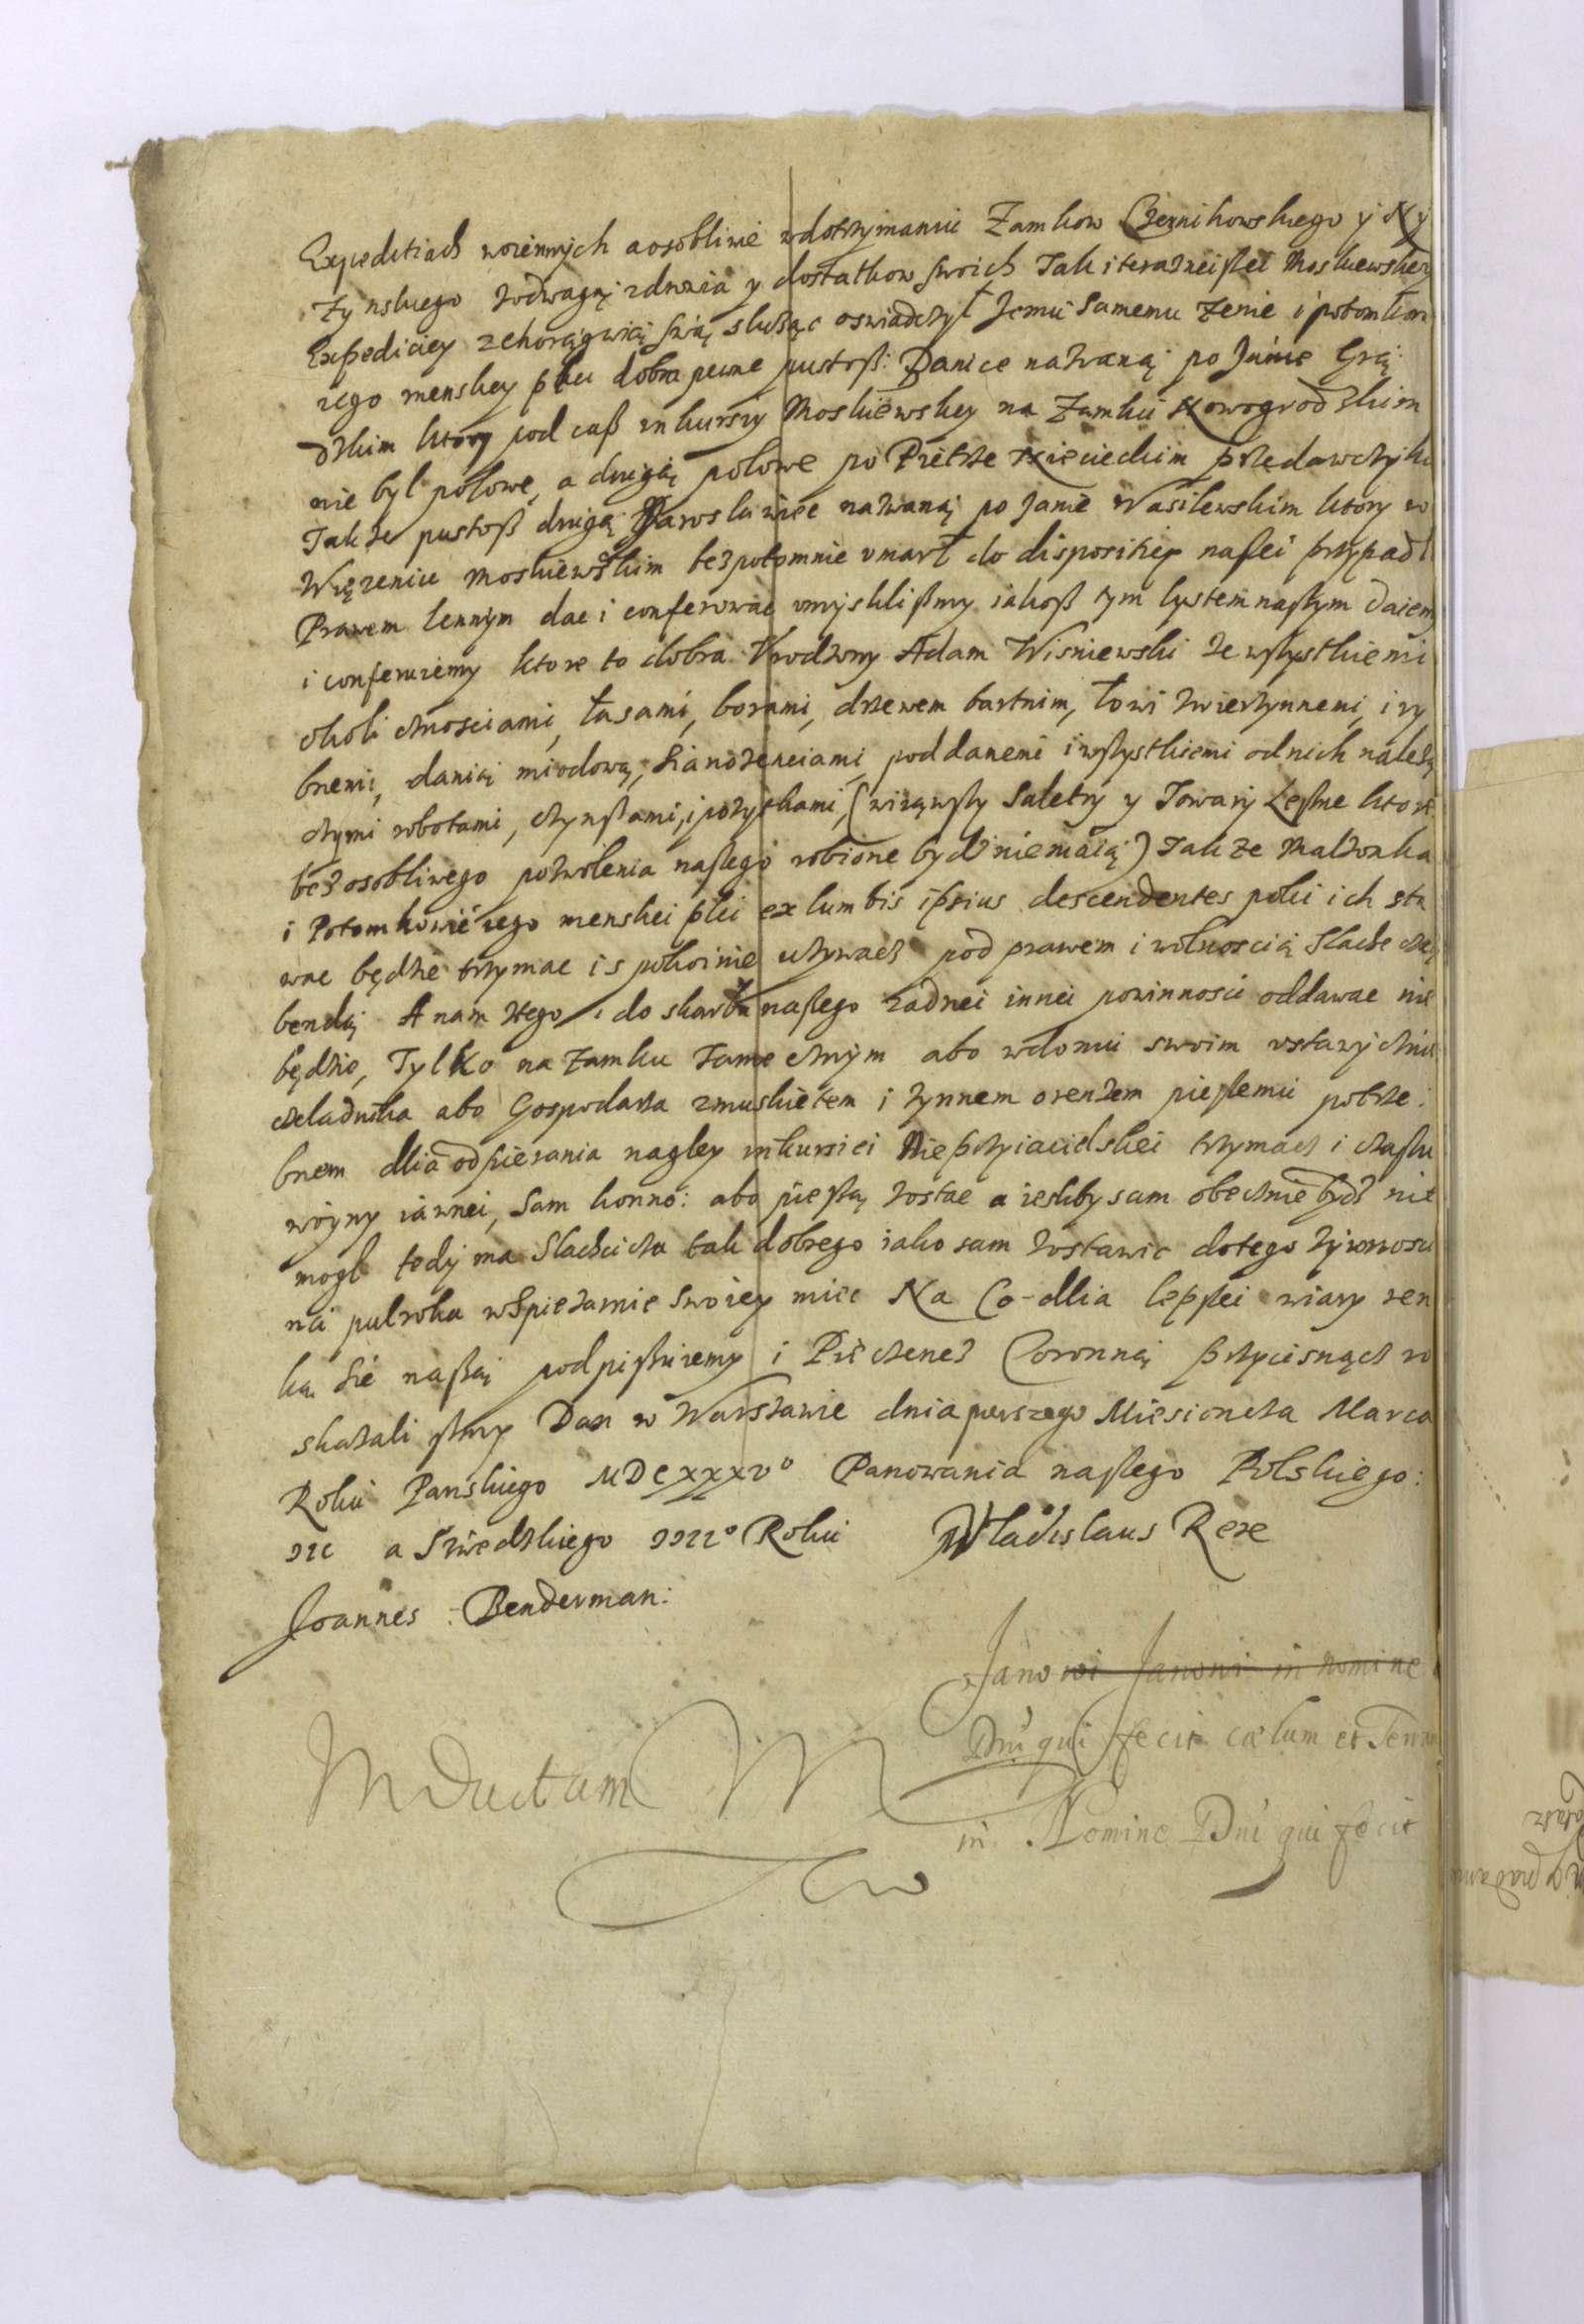 Expeditiach woiennych a osobliwie w dotrzymaniu Zamkow Czernikowskiego y Ny
zynskiego z odwagą zdrowia y dostatkow swoich Tak i teraznieißei Moskiewskey
Expediciey z chorągwią swą sluząc oswiadczył Jemu Samemu zenie i potomkom
iego menskey plei dobra pewne pustoß: Danice nazwaną po Janie Grą
dzkim ktory pod caß inkursiy Moskiewskey na Zamku Nowogrodzkim
nie byl polowe, a drugą polowe po Pietrze przedawczyku
Takze pustoß drugą Jarosławice nazwaną po Janie Wasilewskim ktory w
Więzeniu moskiewskim bezpotomnie vmarł do dispositiey naßei przypadl
Prawem lennym dac i conferowac vmyslilißmy iakoß tym lystem naßym daiem
i conferuiemy ktore to dobra Vrodzony Adam Wisniewski ze wßystkiemi
okolicznosciami, łasami, borami, drzewem bartnim, łowi zwierzynnemi, i ry
bnemi, danią miodową, sianozenciami, poddanemi i wßystkiemi od nich nalezą
czymi robotami, czynßami, i pozytkami, (wiząwßy Saletry y Towary Leßne ktore
bez osobliwego pozwolenia naßego robione bydz niemaią) Takze Malzonka
i Potomkowie iego menskei plei ex lumbis ipsius descendentes poki ich sta
wac będzie trzymac i spokoinie uzywacz pod prawem i wolnoscią Slachecką
bendą A nam ztego i do skarbu naßego zadnei innei powinnosci oddawac nie
będzie, Tylko na zamku Tamecznym abo w domu swoim vstawycznie
czeladnika abo Gospodarza z muskietem i zynnem orenzem pießemu potrze:
bnem dlia odpierania nagley inkursiei Nieprzyiacielskei trzymacz i czaßu
woyny iawnei, Sam konno: abo pießą zostac a iesliby sam obecznie bydz nie
mogl tedy ma Slachcicza tak dobrego iako sam zostawic do tego zywnosci
na pulroka w Spizarnie swoiey miec Na Co dlia lepßei wiary ren
ką sie naßą podpißuiemy i Pieczenez Coronną przycisnącz ro
skazali ßmy Dan w Warszawie dnia perszego Miesioncza Marca
Roku Panskiego MDCXXXVo Panowania naßego Polskiego:
iii a Szwedzkiego iiii° Roku Wladislaus Rex
Joannes Benderman:
Janowi Janowi in nomine
Dni qui fecit cælum et Terram
Inductam
in Nomine Dni qui fecit